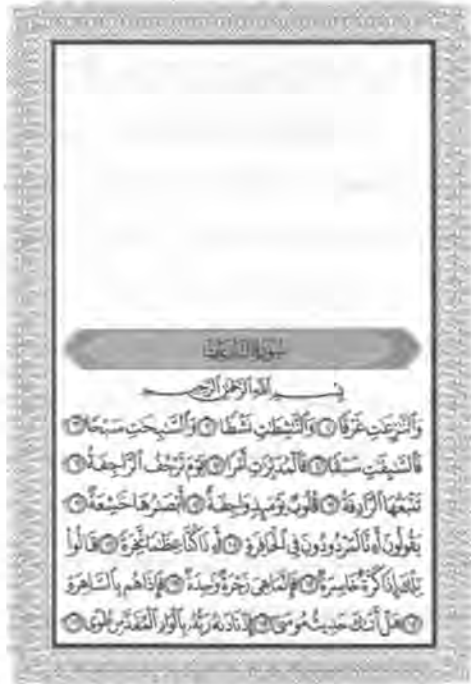 سورة النازعات
بسم الله الرحمن الرحيم
وَٱلنَّـٰزِعَـٰتِ غَرْقًا ۝١ وَٱلنَّـٰشِطَـٰتِ نَشْطًا ۝٢ وَٱلسَّـٰبِحَـٰتِ سَبْحًا ۝٣
فَٱلسَّـٰبِقَـٰتِ سَبْقًا ۝٤ فَٱلْمُدَبِّرَٰتِ أَمْرًا ۝٥ يَوْمَ تَرْجُفُ ٱلرَّاجِفَةُ ۝٦
تَتْبَعُهَا ٱلرَّادِفَةُ ۝٧ قُلُوبٌ يَوْمَئِذٍ وَاجِفَةٌ ۝٨ أَبْصَـٰرُهَا خَـٰشِعَةٌ ۝٩
يَقُولُونَ أَءِنَّا لَمَرْدُودُونَ فِى ٱلْحَافِرَةِ ۝١٠ أَءِذَا كُنَّا عِظَـٰمًا نَّخِرَةً ۝١١ قَالُوا۟
تِلْكَ إِذًا كَرَّةٌ خَاسِرَةٌ ۝١٢ فَإِنَّمَا هِىَ زَجْرَةٌ وَٰحِدَةٌ ۝١٣ فَإِذَا هُم بِٱلسَّاهِرَةِ
۝١٤ هَلْ أَتَىٰكَ حَدِيثُ مُوسَىٰٓ ۝١٥ إِذْ نَادَىٰهُ رَبُّهُۥ بِٱلْوَادِ ٱلْمُقَدَّسِ طُوًى ۝١٦